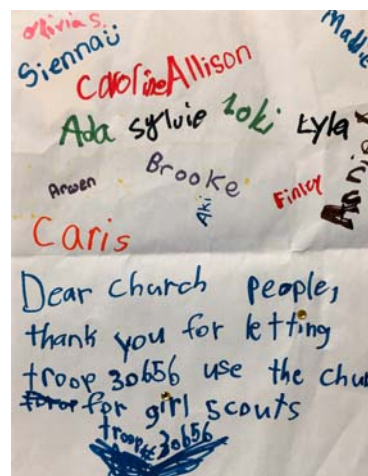 Olivia S.
Sienna
Maddie
Caroline Allison
Ada Sylvie Loki Lyla
Arwen Brooke Aki Finley
Caris
Dear Church people,
thank you for letting
troop 30656 use the
for girl scouts
troop# 30656